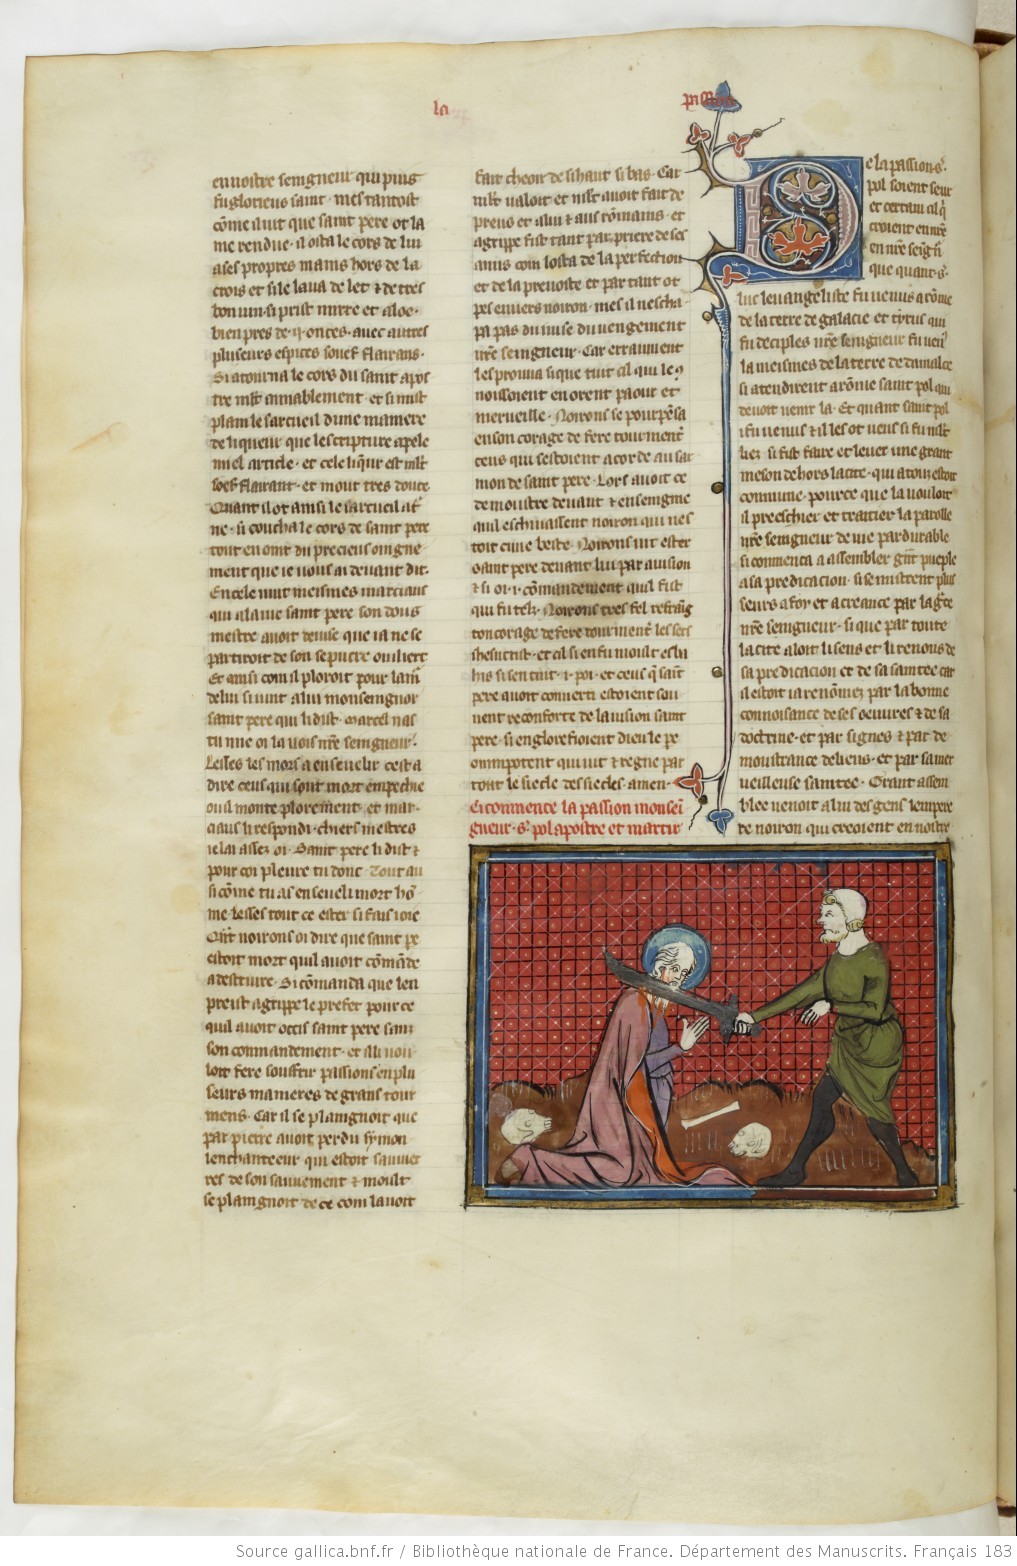 la
passion
en nostre seingneur qui puis
fu glorieus saint · mes tantost
cōme il vit que saint pere ot la
me rendue · il osta le cors de lui
a ses propres mains hors de la
crois et si le laua de let ⁊ de tres
bon vin · si prist mirre et aloe ·
bien pres de · onces · auec autres
pluseurs espices souef flairans ·
Si atorna le cors du saint apos
tre mlt amiablement · et si mist
plain le sarcueil dune maniere
de liqueur que lescripture apele
miel article · et cele liqur est mlt
soef flairant · et mout tres douce
Quant il ot ainsi le sarcueil at
ne · si coucha le cors de saint pere
tout en oint du precieus oingne
ment que ie vous ai deuant dit ·
En cele nuit meismes marciaus
qui a la me saint pere son dous
mestre auoit deuise que ia ne se
partiroit de son sepucre ou il ert
Et ainsi com il ploroit pour lam
de lui si vint a lui monseingnor
saint pere qui li dist · Marcel nas
tu mie oi la vois nre seingneur ·
Lesses les mors a enseuelir cest a
dire ceus qui sont mort empechie
ou il monte plorement · et mar
ciaus li respondi · chiers mestres
ie lai assez oi · Saint pere li dist ⁊
pour coi pleure tu donc · Tout au
si cōme tu as enseueli mort hō
me lesses tout ce ester si fais ioie
Qnt noirons oi dire que saint pe
estoit mort quil auoit cōmāde
a destruire · Si cōmanda que len
preist agrippe le prefet pour ce
quil auoit occis saint pere sanz
son commandement · et si li vou
loit fere souffrir passions en plu
seurs manieres de grans tour
mens · Car il se plaingnoit que
par pierre auoit perdu symon
lenchanteeur qui estoit sauuer
res de son sauuement ⁊ moult
se plaingnoit de ce com lauoit
fait cheoir de si haut si bas · Car
mlt valoit et mlt auoit fait de
preus et a lui ⁊ aus rōmains · et
agrippe fist tant par priere de ses
amis com losta de la perfection
et de la preuoste et par tant ot
pes enuers noiron · mes il nescha
pa pas du iuise du vengement
nre seingneur · Car erraument
les prouua si que tuit cil qui le
noissoient en orent paour et
merueille · Noirons se pourpēsa
en son corage de fere tourment
ceus qui sestoient acorde au sar
mon de saint pere · Lors auoit ce
demoustre deuant ⁊ enseingnie
quil eschiuassent noiron qui nes
toit cune beste · Noirons vit ester
o saint pere deuant lui par auision
⁊ si oi · i · cōmandement quil fust
qui fu telz · Noirons tres fel refraing
ton corage de fere tourment les sers
ihesucrist · et cil si en fu moult esba
his si sen tint · i · poi · et ceus q̄ saīt
pere auoit conuerti estoient sou
uent reconforte de la uision saint
pere · si englorefioient dieu le pe
omnipotent qui vit ⁊ regne par
tout le siecle des siecles · amen ·
Ci commence la passion monsei
gneur · s · pol apostre et martir
De la passion · s ·
pol soient seur
et certain cil q̄
croient en nre
en nre seignr
que quant · s ·
luc leuangeliste fu venus a rōme
de la terre de galacie et tytus qui
fu deciples nre seingneur fu ven
la meismes de la terre de damalce
si atendirent a rōme saint pol qui
deuoit venir la · Et quant saint pol
i fu venus ⁊ il les ot veus si fu mlt
liez · si fist faire et leuer une grant
meson de hors la cite · qui a touz estoit
commune · pource que la vouloit
il preeschier et traitier la parolle
nre seingneur de vie pardurable
si commenca a assembler grnt pueple
a sa predicacion · si se mistrent plus
seurs a foy et a creance par la gce
nre seingneur · si que par toute
la cite aloit li sens et li renons de
sa predicacion et de sa saintee car
il estoit ia renōmez par la bonne
connoisance de ses oeuures ⁊ de sa
doctrine · et par signes ⁊ par de
moustrance de biens · et par sa mer
ueilleuse saintee · Grant assem
blee venoit a lui des gens lempere
re noiron qui creoient en nostre
Source gallica.bnf.fr / Bibliothèque nationale de France. Département des Manuscrits. Français 183